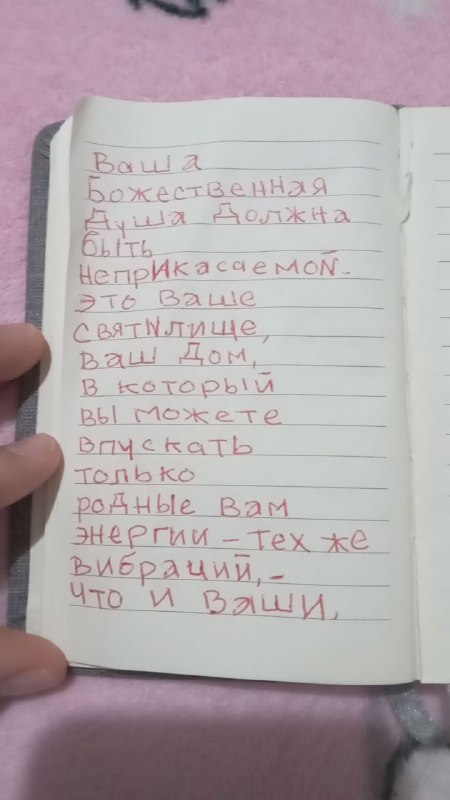 Ваша
Божественная
Душа Должна
быть
Неприкасаемой-
это Ваше
святилище,
ваш Дом,
в который
вы можете
впускать
только
родные вам
энергии - тех же
вибраций, -
что и Ваши,